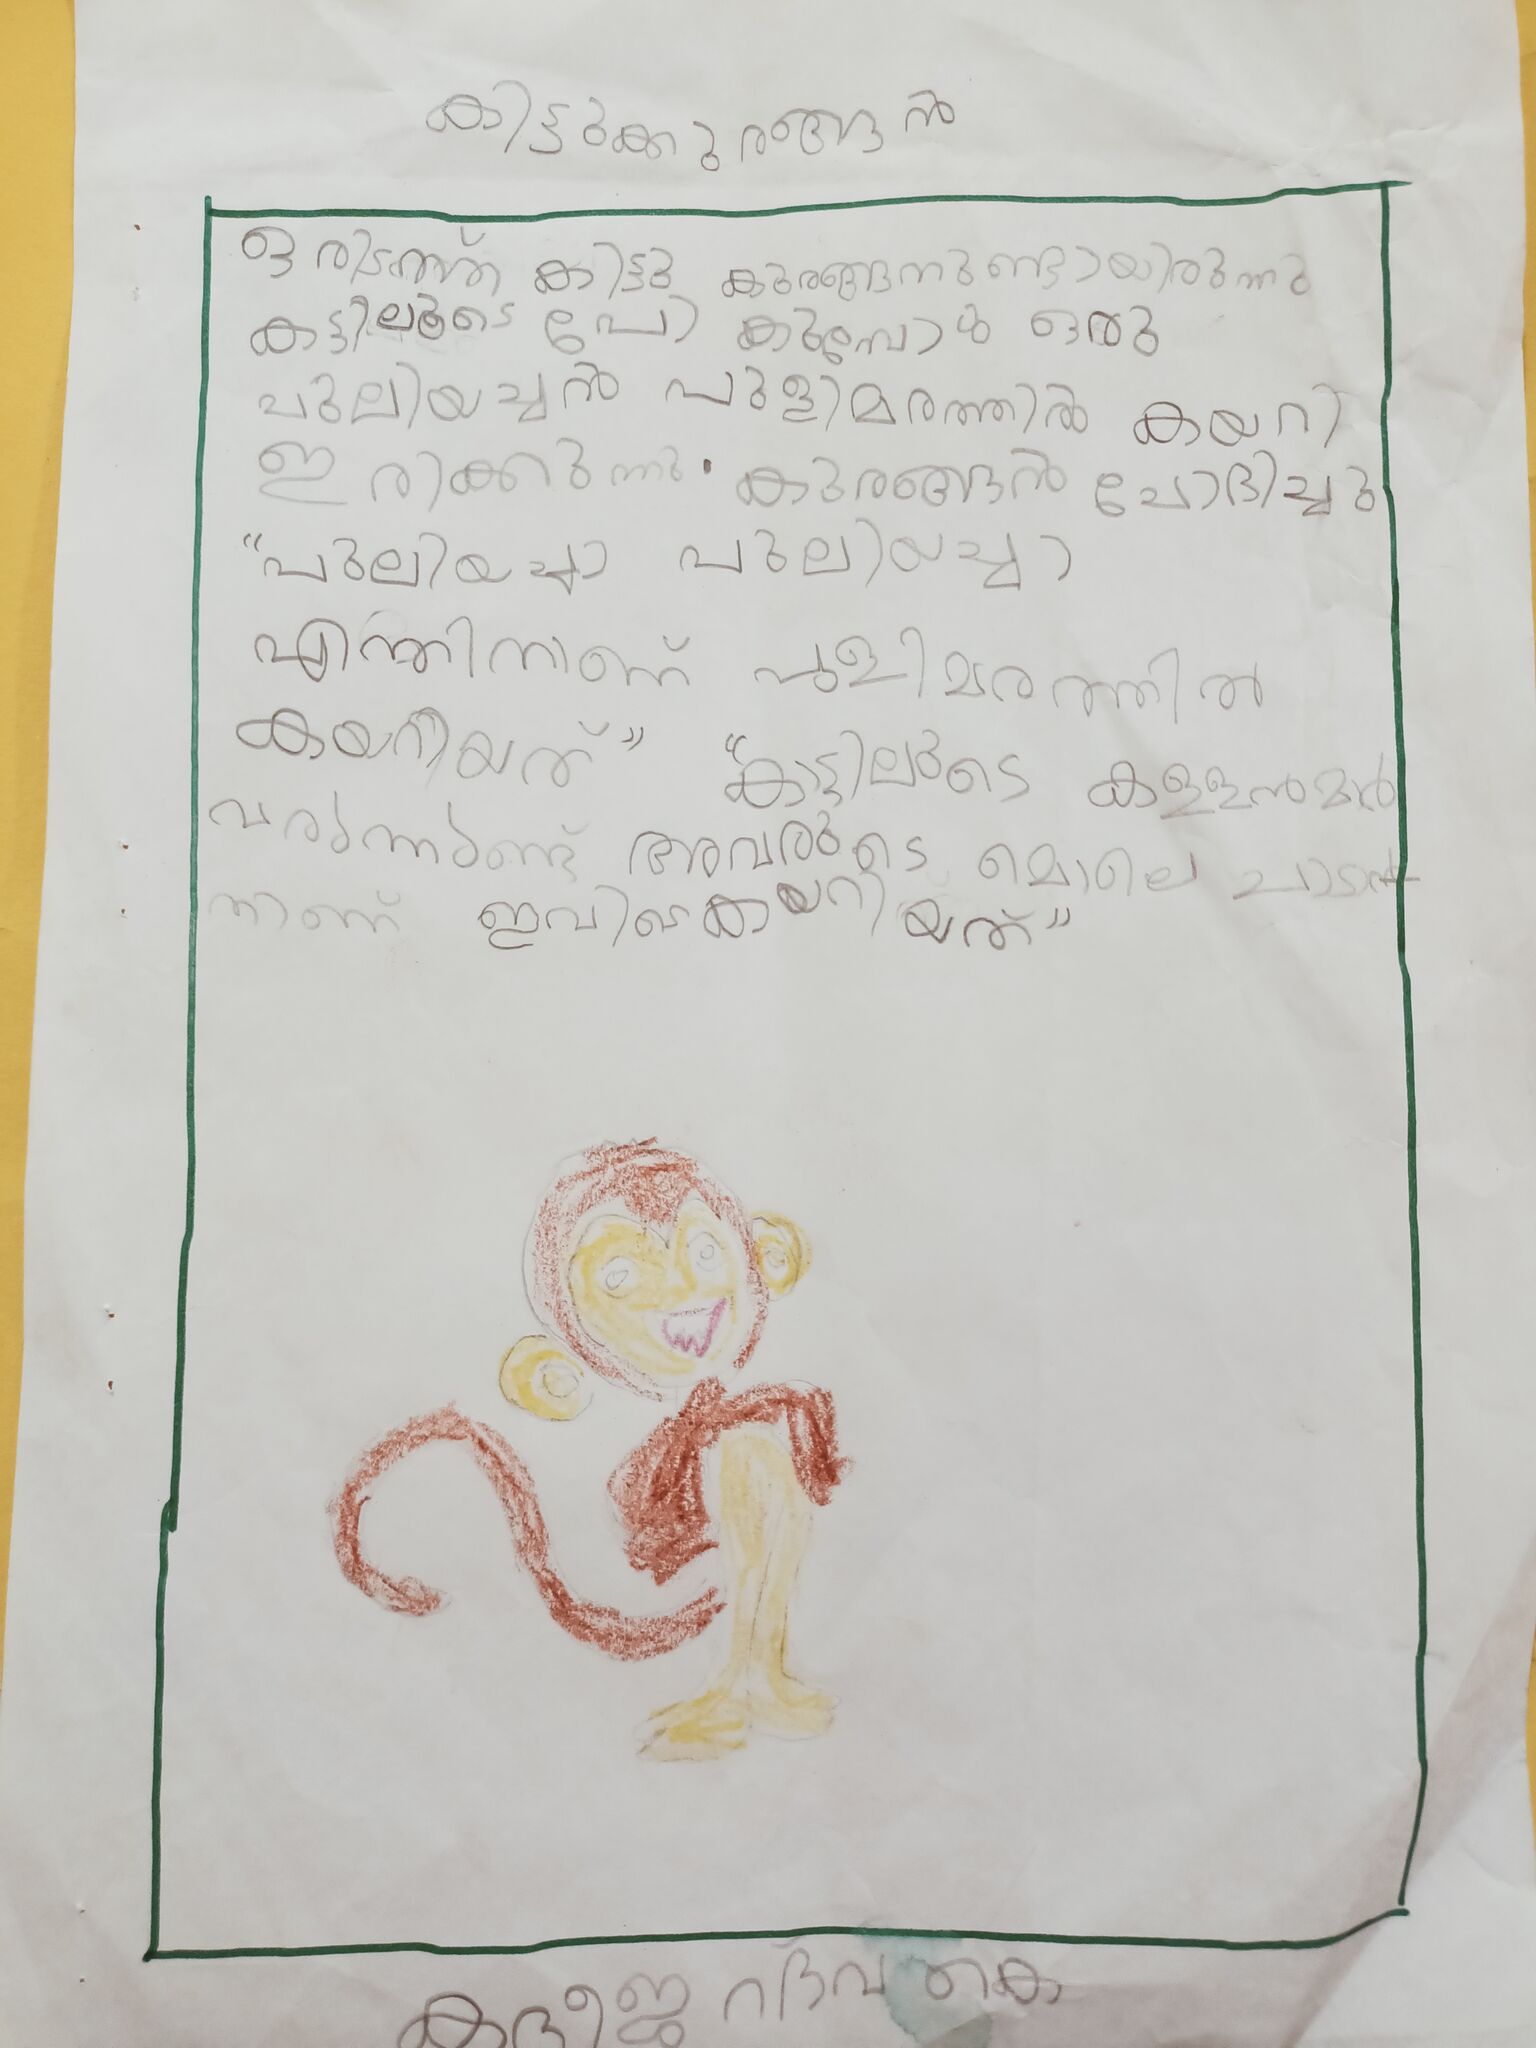 കിട്ടുക്കുരങ്ങൻ
ഒരിടത്ത് കിട്ടു കുരങ്ങനുണ്ടായിരുന്നു
കട്ടിലൂടെ പോ കുമ്പോൾ ഒരു
പുലിയച്ചൻ പുളിമരത്തിൽ കയറി
ഇ രിക്കുന്നു. കുരങ്ങൻ ചോദിച്ചു
“പുലിയച്ചാ പുലിയച്ചാ
എന്തിനാണ് പുളിമരത്തിൽ
കയറിയത്” “കാട്ടിലൂടെ കള്ളൻമാർ
വരുന്നുണ്ട് അവരുടെ മൊലെ ചാടാൻ
നാണ് ഇവിടെകയറി യത്”
കദീജ